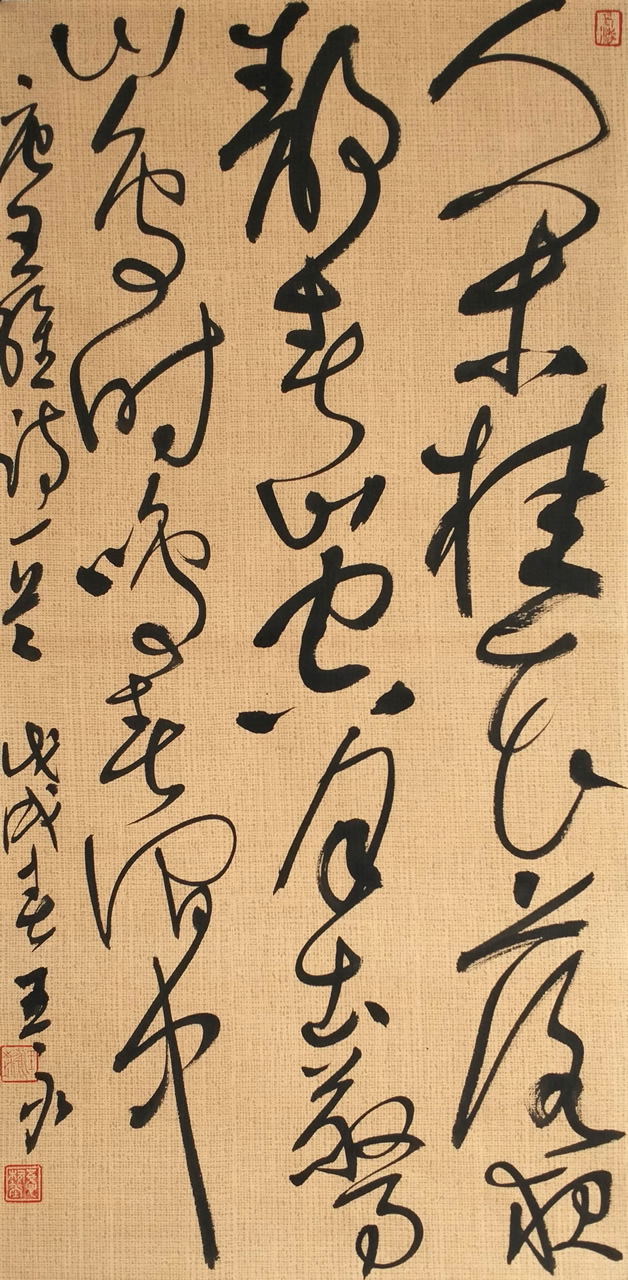 人闲桂花落夜
静春山空月出驚
山鸟时鸣春涧中
唐王维诗一首 戊戌春 王永